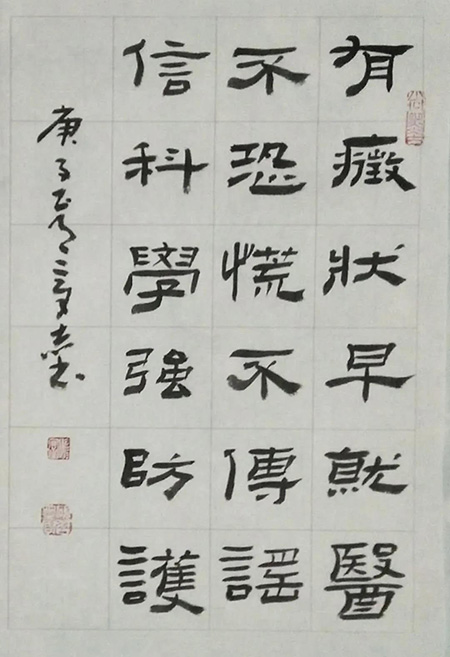 有癥狀早就醫
不恐慌不傳謠
信科學强防護
庚子